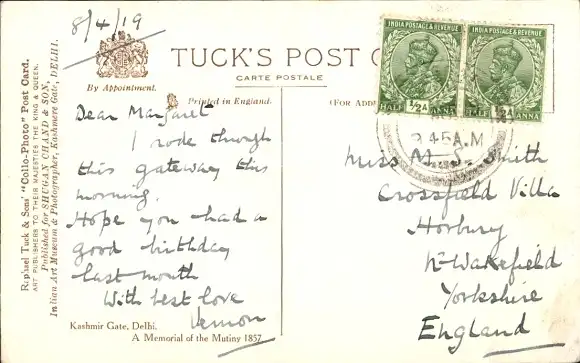 8/4/19
TUCK'S POST C
CARTE POSTALE
By Appointment.
Printed in England.
(FOR ADD
INDIA POSTAGE & REVENUE
½A
HALF ANNA
INDIA POSTAGE & REVENUE
½A
HALF ANNA
45 A.M
Raphael Tuck & Sons' "Collo-Photo" Post Card.
ART PUBLISHERS TO THEIR MAJESTIES THE KING & QUEEN.
Published for SHUGAN CHAND & SON,
Indian Art Museum & Photographer, Kashmere Gate, DELHI.
Dear Margaret
I rode through
this gateway this
morning.
Hope you had a
good birthday
last month
With best love
Vernon
Kashmir Gate, Delhi.
A Memorial of the Mutiny 1857.
Miss M Smith
Crossfield Villa
Horbury
Nr Wakefield
Yorkshire
England